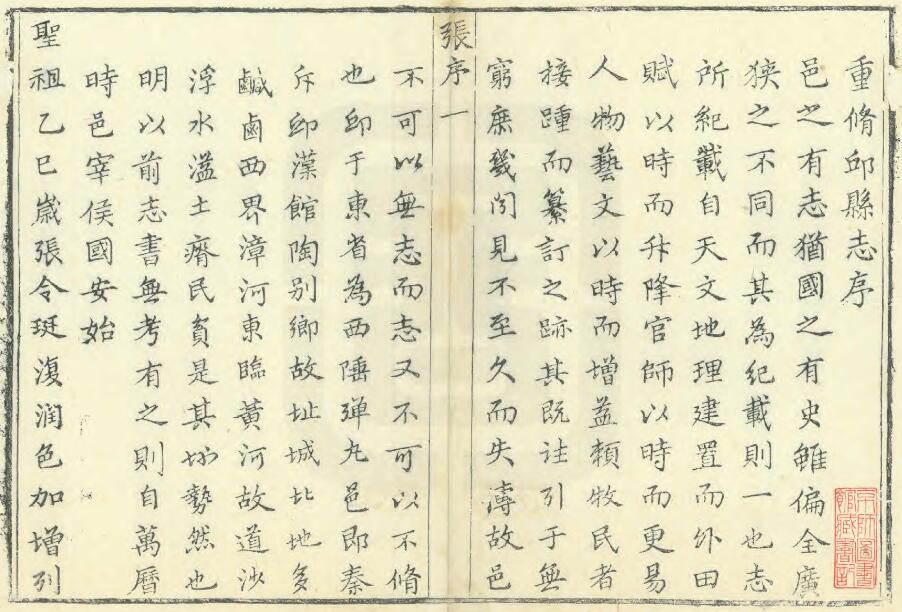 重脩邱縣志序
邑之有志猶國之有史雖偏全廣
狹之不同而其為紀載則一也志
所紀載自天文地理建置而外田
賦以時而升降官師以時而更易
人物藝文以時而增益頼牧民者
接踵而纂訂之跡其既往引于無
窮庶幾聞見不至久而失濤故邑
張序一
不可以無志而志又不可以不脩
也邱于東省為西陲彈丸邑即秦
斥邱漢館陶别鄉故址城北地多
鹹鹵西界漳河東臨黃河故道沙
浮水溢土瘠民貧是其形勢然也
明以前志書無考有之則自萬曆
時邑宰侯國安始
聖祖乙巳嵗張令珽復润色加增列
京師圖書館藏書記